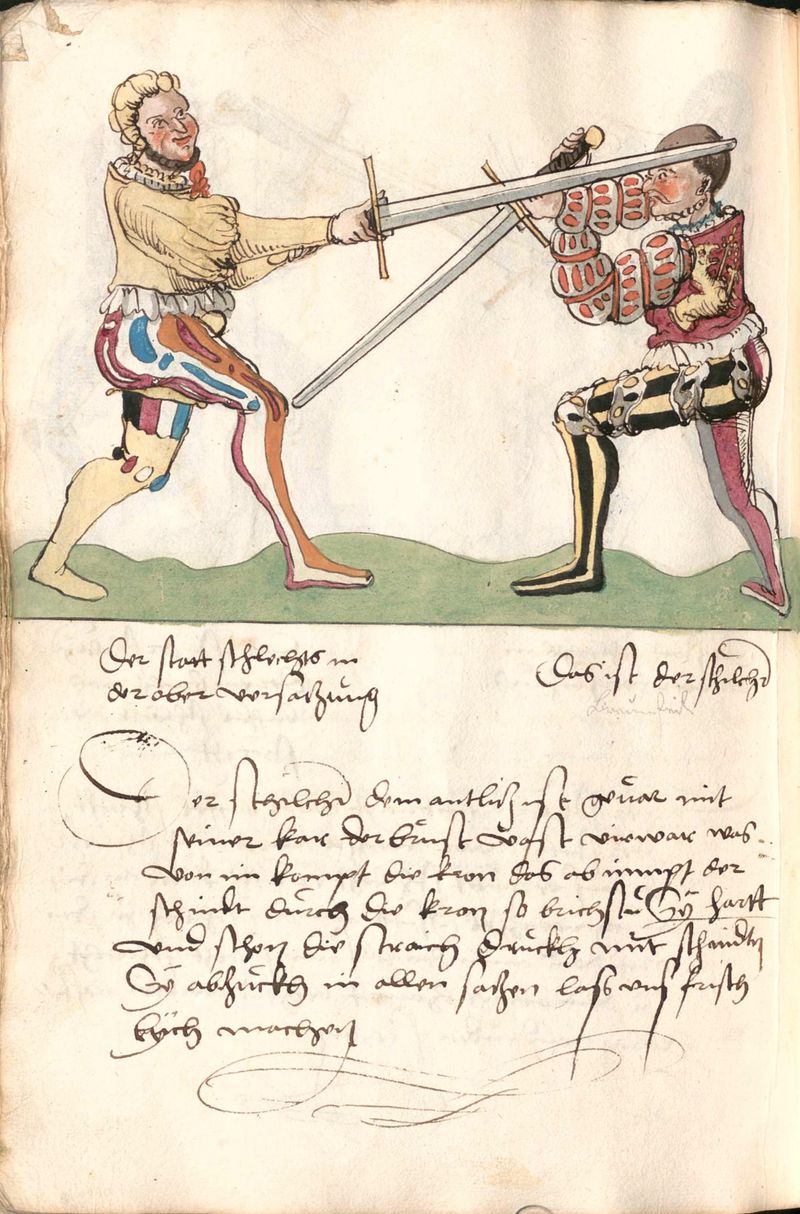 Der statt schlechts in
der ober versatzung
Das ist der schilcher
Der schilcher dem antlitz ist gevar mit
seiner kar der brust vast vierwar was
von im kompt die kron das ab nimpt der
schnidt durch die kron so brichstu Sy hartt
und schon die straich druckh mit schnidten
Sy abzuckh in allen satzen lass uns frisch
 machen